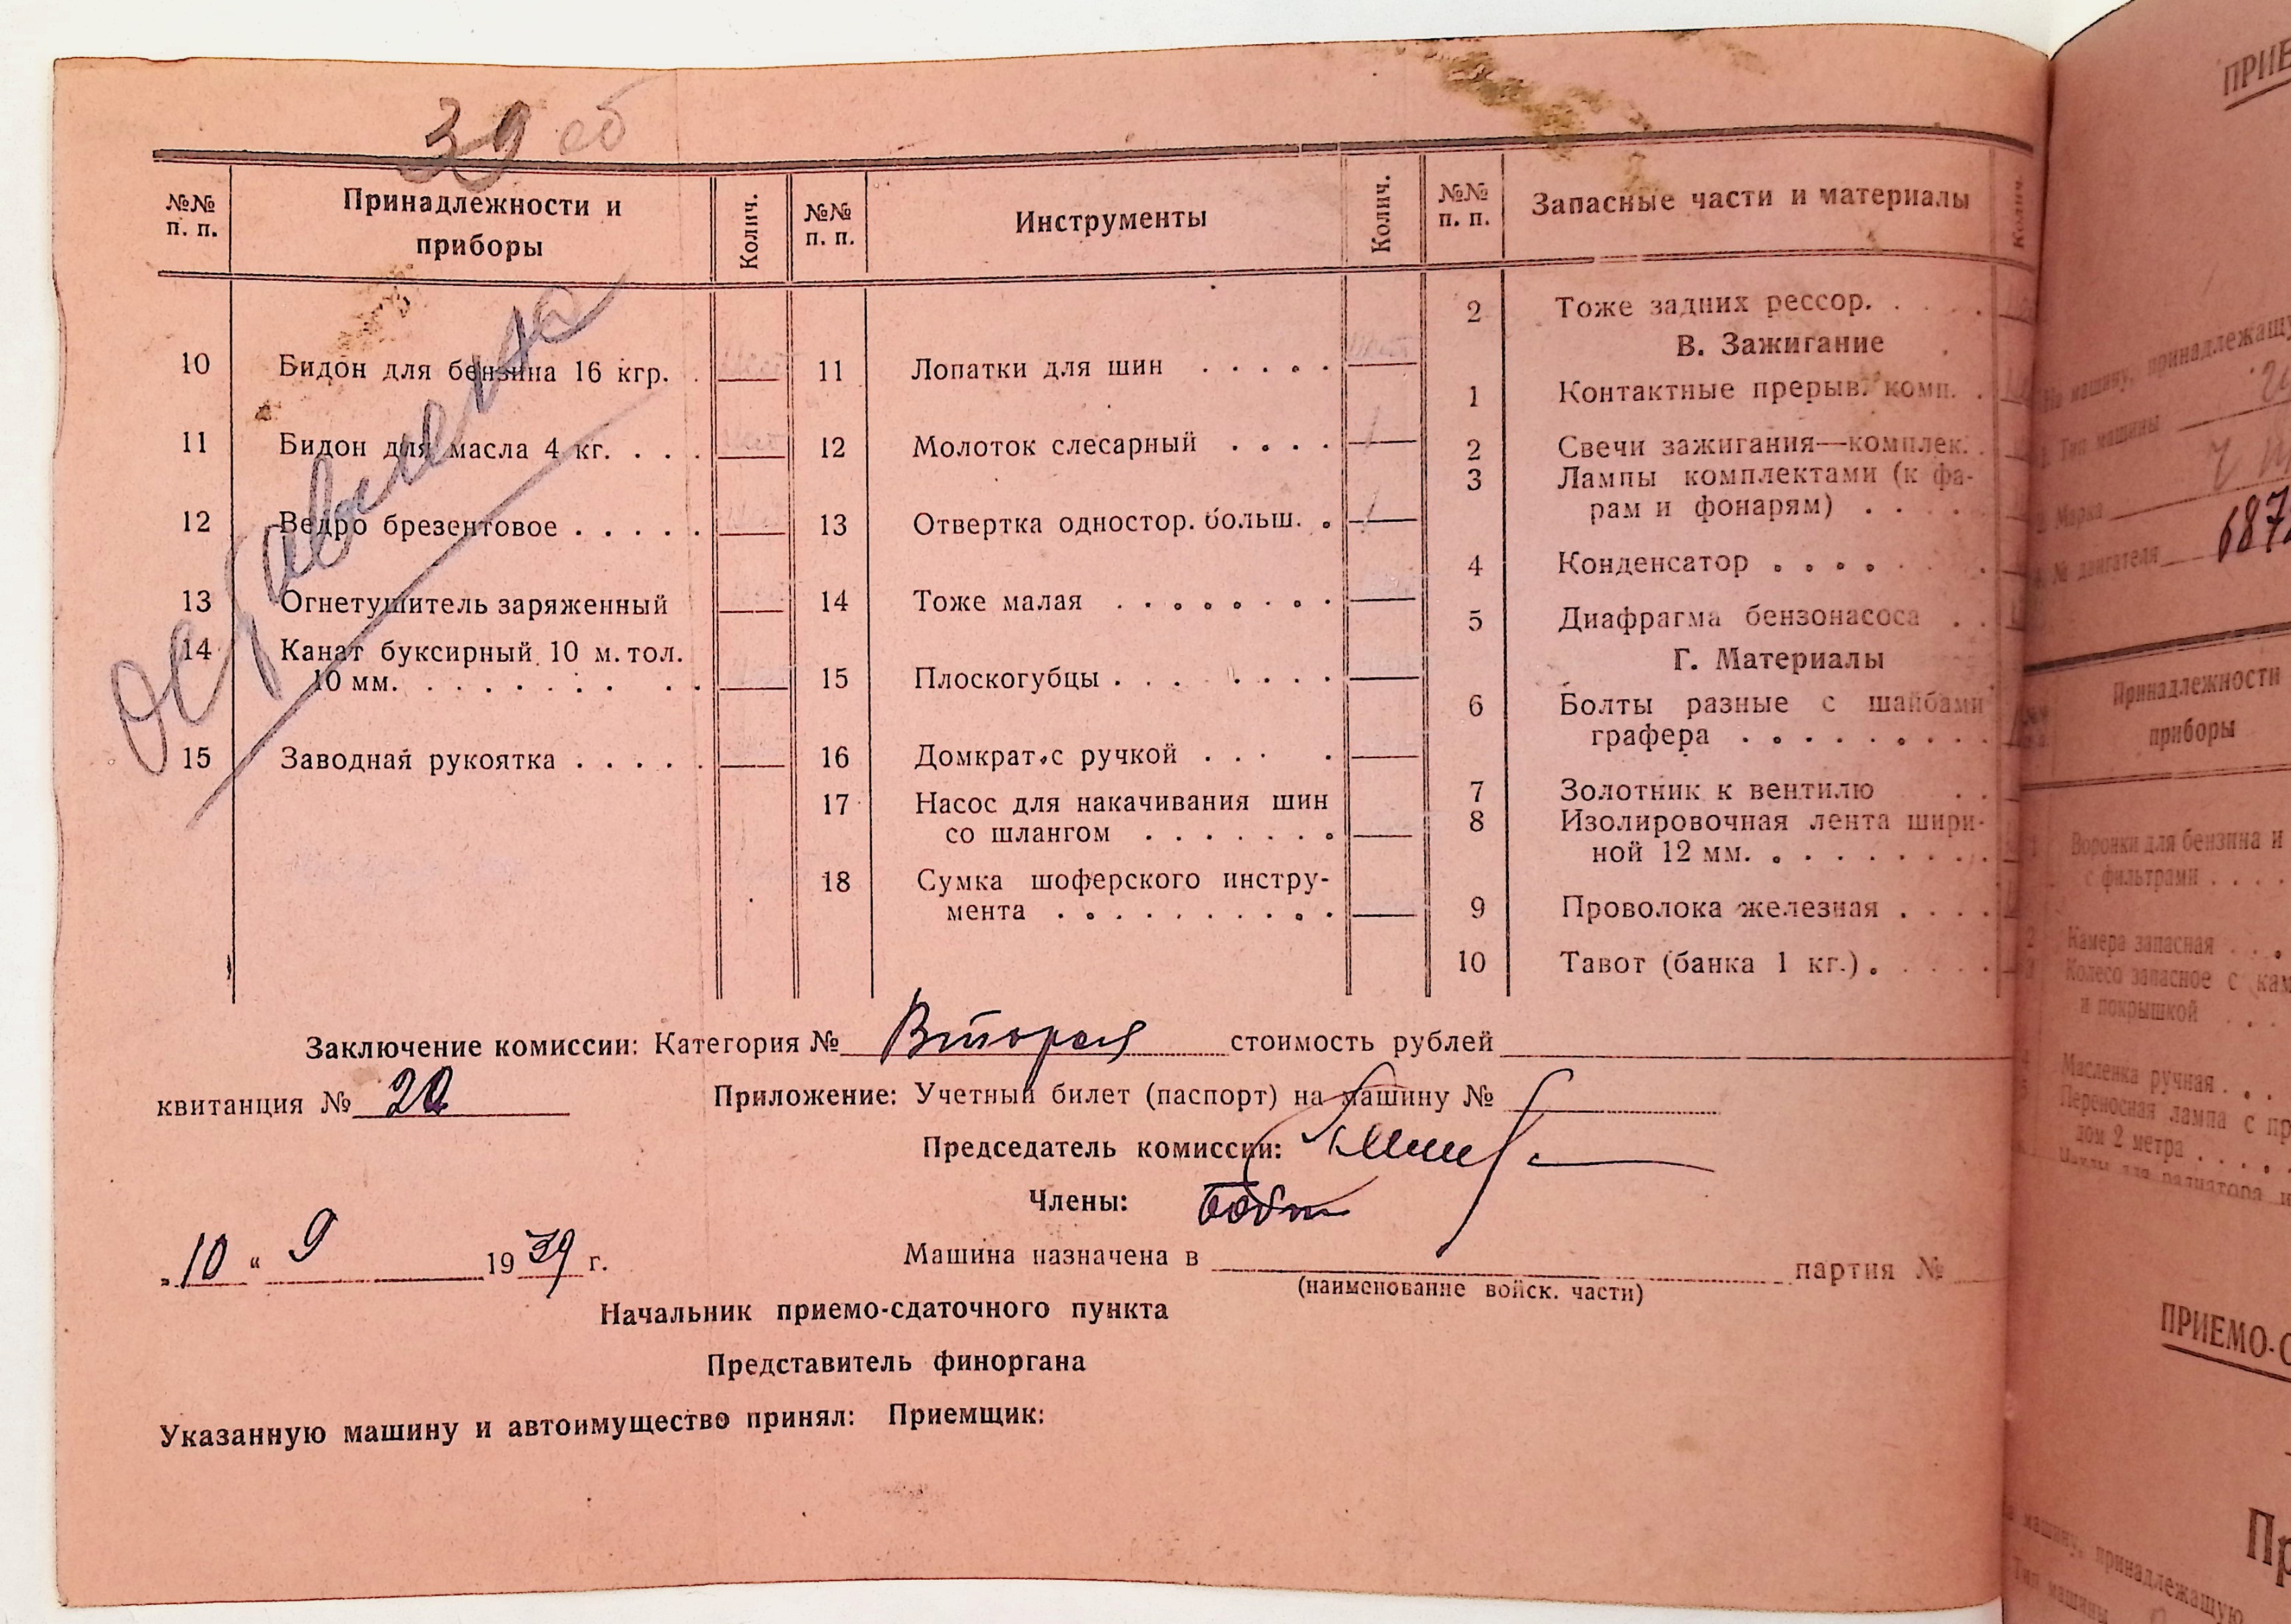 39 об
№№ п. п. Принадлежности и приборы Колич. №№ п. п. Инструменты Колич. №№ п. п. Запасные части и материалы Колич.
2 Тоже задних рессор. . . . .
В. Зажигание
10 Бидон для бензина 16 кгр. . 11 Лопатки для шин . . . . .
1 Контактные прерыв. комп. .
11 Бидон для масла 4 кг. . . . 12 Молоток слесарный . . . . 1
2 Свечи зажигания—комплек. .
3 Лампы комплектами (к фа-
рам и фонарям) . . . .
12 Ведро брезентовое . . . . . 13 Отвертка одностор. больш. . 1
4 Конденсатор . . . . . .
13 Огнетушитель заряженный 14 Тоже малая . . . . . . . .
5 Диафрагма бензонасоса . .
14 Канат буксирный 10 м. тол.
10 мм. . . . . . . . . .
Г. Материалы
15 Плоскогубцы . . . . . .
6 Болты разные с шайбами
графера . . . . . . . . .
15 Заводная рукоятка . . . . . 16 Домкрат с ручкой . . . .
7 Золотник к вентилю . .
17 Насос для накачивания шин
со шлангом . . . . . . .
8 Изолировочная лента шири-
ной 12 мм. . . . . . . . .
18 Сумка шоферского инстру-
мента . . . . . . . . . .
9 Проволока железная . . . .
10 Тавот (банка 1 кг.) . . . . .
оставлена
Заключение комиссии: Категория № Вторая стоимость рублей
квитанция № 20 Приложение: Учетный билет (паспорт) на машину №
Председатель комиссии:
Члены:
„10“ 9 1939 г. Машина назначена в партия №
(наименование войск. части)
Начальник приемо-сдаточного пункта
Представитель финоргана
Указанную машину и автоимущество принял: Приемщик:
ПРИЕ
На машину, принадлежащу
1. Тип машины
2. Марка
№ двигателя 687
Принадлежности
приборы
1 Воронки для бензина и
с фильтрами . . . .
2 Камера запасная . . .
3 Колесо запасное с кам
и покрышкой . . .
4 Масленка ручная . . .
5 Переносная лампа с пр
дом 2 метра . . . . .
радиатора и
ПРИЕМО-С
Пр
На машину, принадлежащую
Тип машины